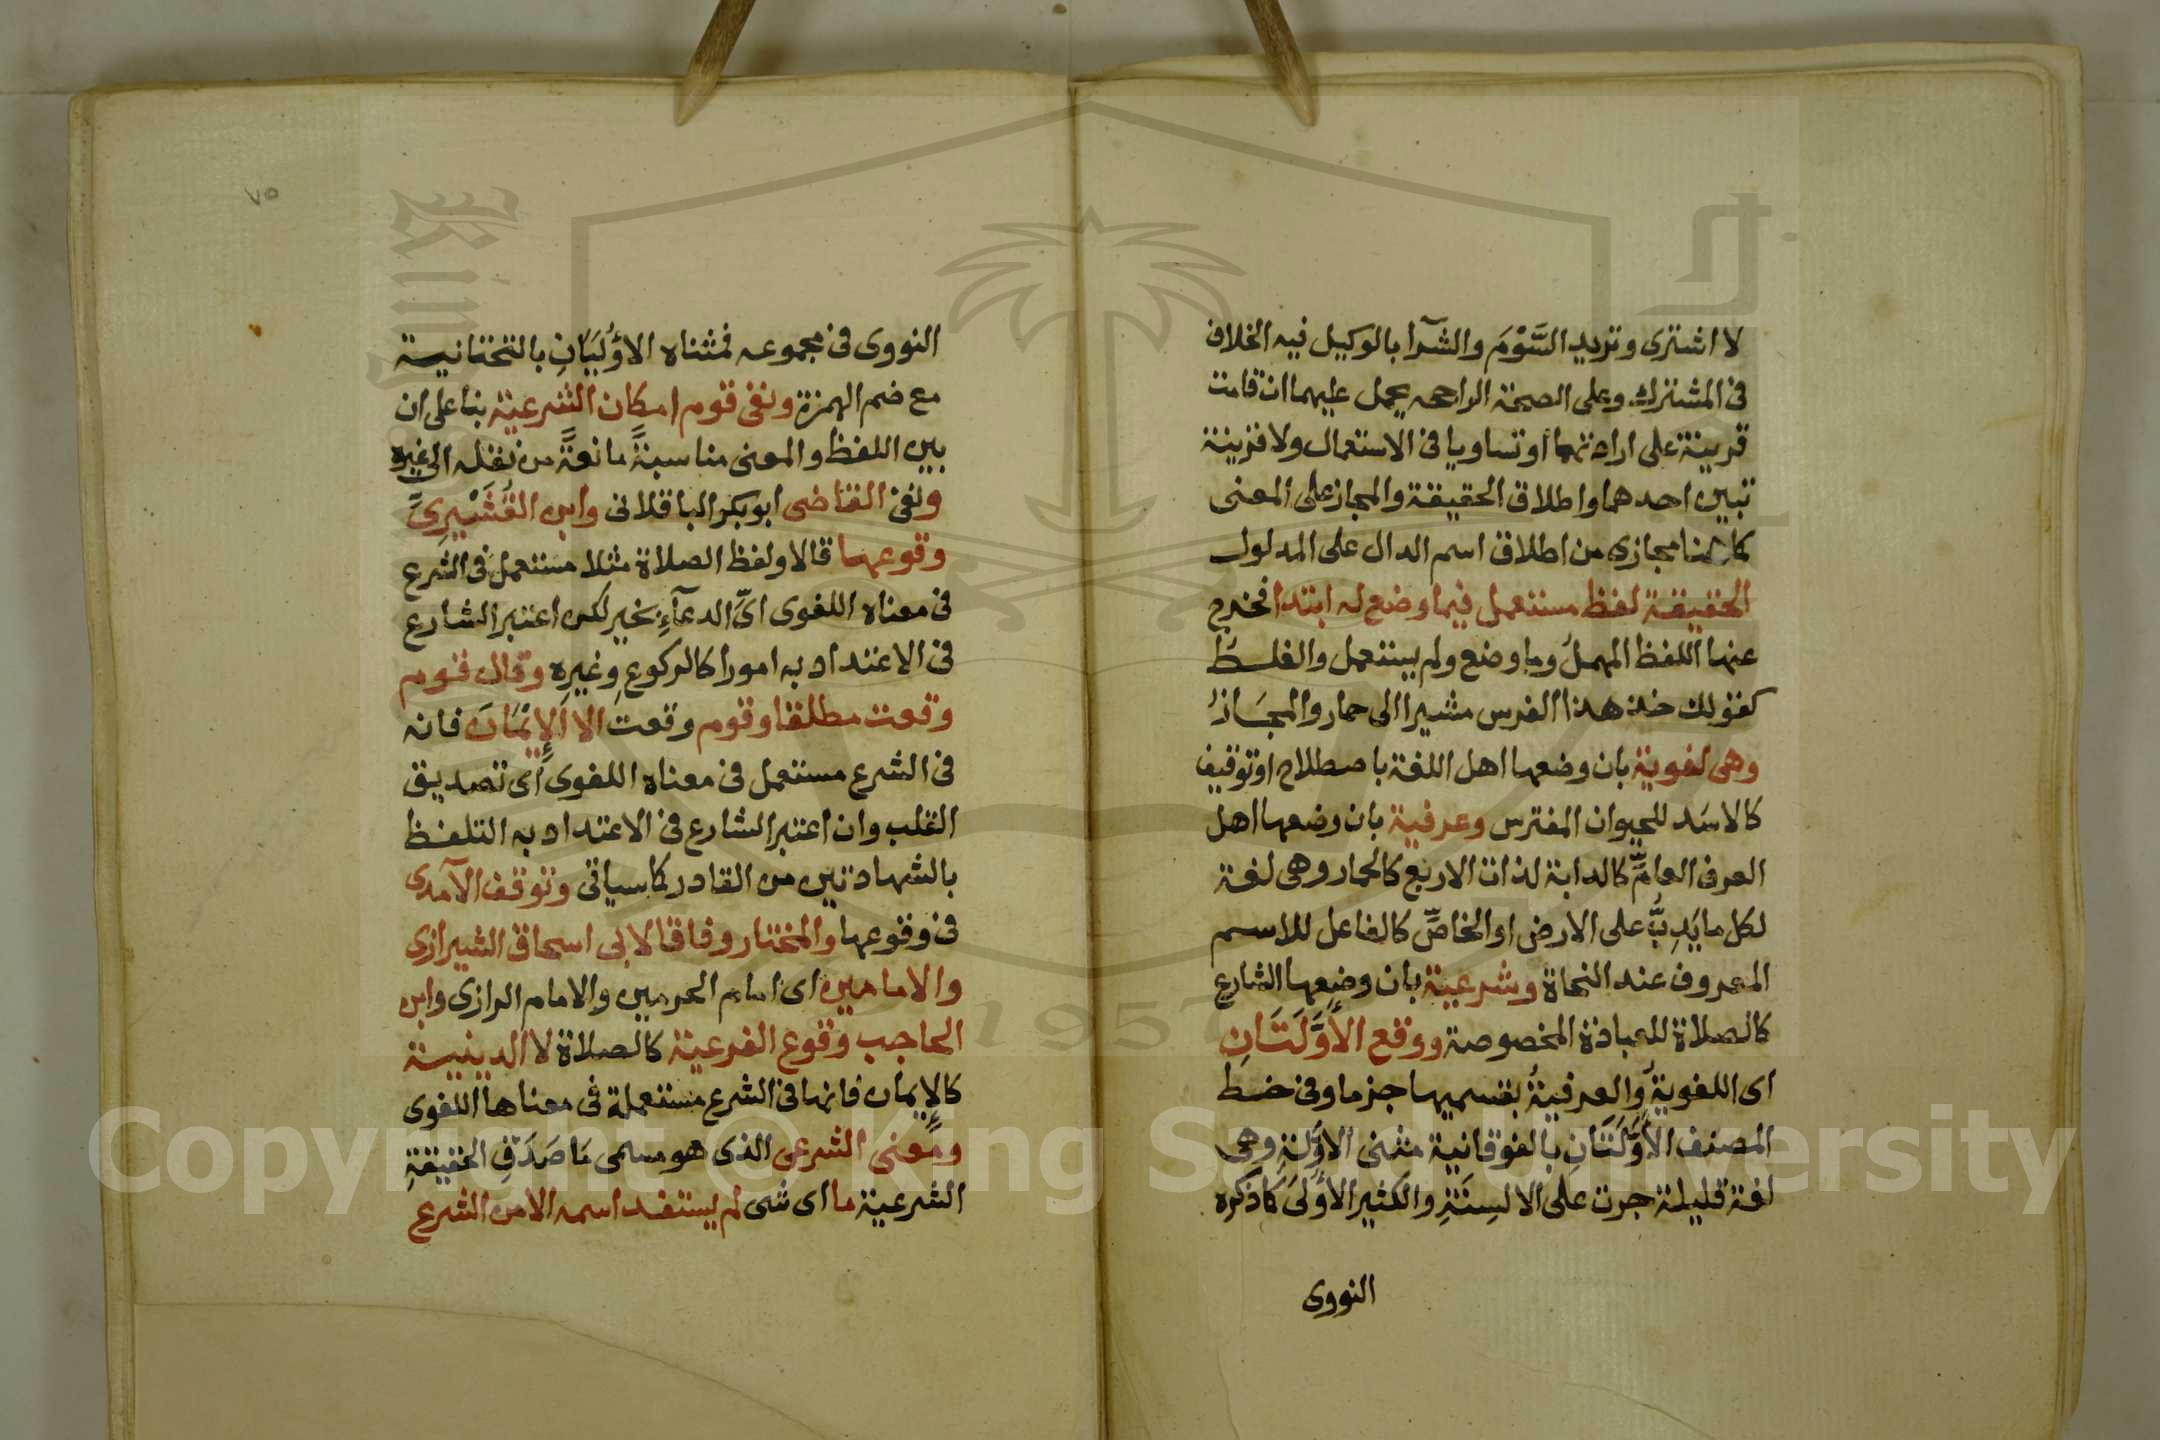 لا اشترى وتريد السَّوْمَ والشرآ بالوكيل فيه الخلاف
فى المشترك وعلى الصحة الراجحه يحمل عليهما ان قامت
قرينة على ارادتهما او تساويا فى الاستعمال ولا قرينة
تبين احدهما واطلاق الحقيقة والمجاز على المعنى
كما هنا مجازى من اطلاق اسم الدال على المدلول
الحقيقة لفظ مستعمل فيما وضع له ابتدا فخرج
عنها اللفظ المهمل وما وضع ولم يستعمل والغلط
كقولك خذ هذا الفرس مشيرا الى حمار والمجَاز
وهى لغوية بان وضعها اهل اللغة باصطلاح او توقيف
كالاسَد للحيوان المفترس وعرفية بان وضعها اهل
العرف العامِّ كالدابة لذات الاربع كالحمار وهى لغة
لكل ما يَدِبُّ على الارض او الخاصِّ كالفاعل للاسم
المعروف عند النحاة وشرعية بان وضعها الشارع
كالصلاة للعبادة المخصوصة ووقع الأوَّلَتَانِ
اى اللغوية والعرفيةُ بقسميها جزما وفى خط
المصنف الأوَّلَتَانِ بالفوقانية مثنى الاوَّلةِ وهى
لغة قليلة جرت على الالسِنَةِ والكثير الاولى كما ذكره
النووى
٧٥
النووى فى مجموعه فمثناه الاؤلَيَانِ بالتحتانية
مع ضم الهمزة ونفى قوم امكان الشرعية بنا على ان
بين اللفظ والمعنى مناسبةً مانعةً من نقله الى غيره
ونفى القاضى ابو بكر الباقلانى وابن القُشَيْرِىِّ
وقوعها قالا ولفظ الصلاة مثلا مستعمل فى الشرع
فى معناه اللغوى اى الدعآءِ بخير لكن اعتبر الشارع
فى الاعتداد به امورا كالركوع وغيرِه وقال قوم
وقعت مطلقا وقوم وقعت الا الإيْمَانَ فانه
فى الشرع مستعمل فى معناه اللغوى أى تصديق
القلب وان اعتبر الشارع فى الاعتداد به التلفظ
بالشهادتين من القادر كما سياتى وتوقف الآمدى
فى وقوعها والمختار وفاقا لابى اسحاق الشيرازى
والامامين اى امام الحرمين والامام الرازى وابن
الحاجب وقوع الفرعية كالصلاة لا الدينية
كالإيمان فانها فى الشرع مستعملة فى معناها اللغوى
ومعنى الشرعى الذى هو مسمى مَا صَدَقِ الحقيقةِ
الشرعية ما اى شى لم يستفد اسمه الا من الشرع
1957
Copyright © King Saud University